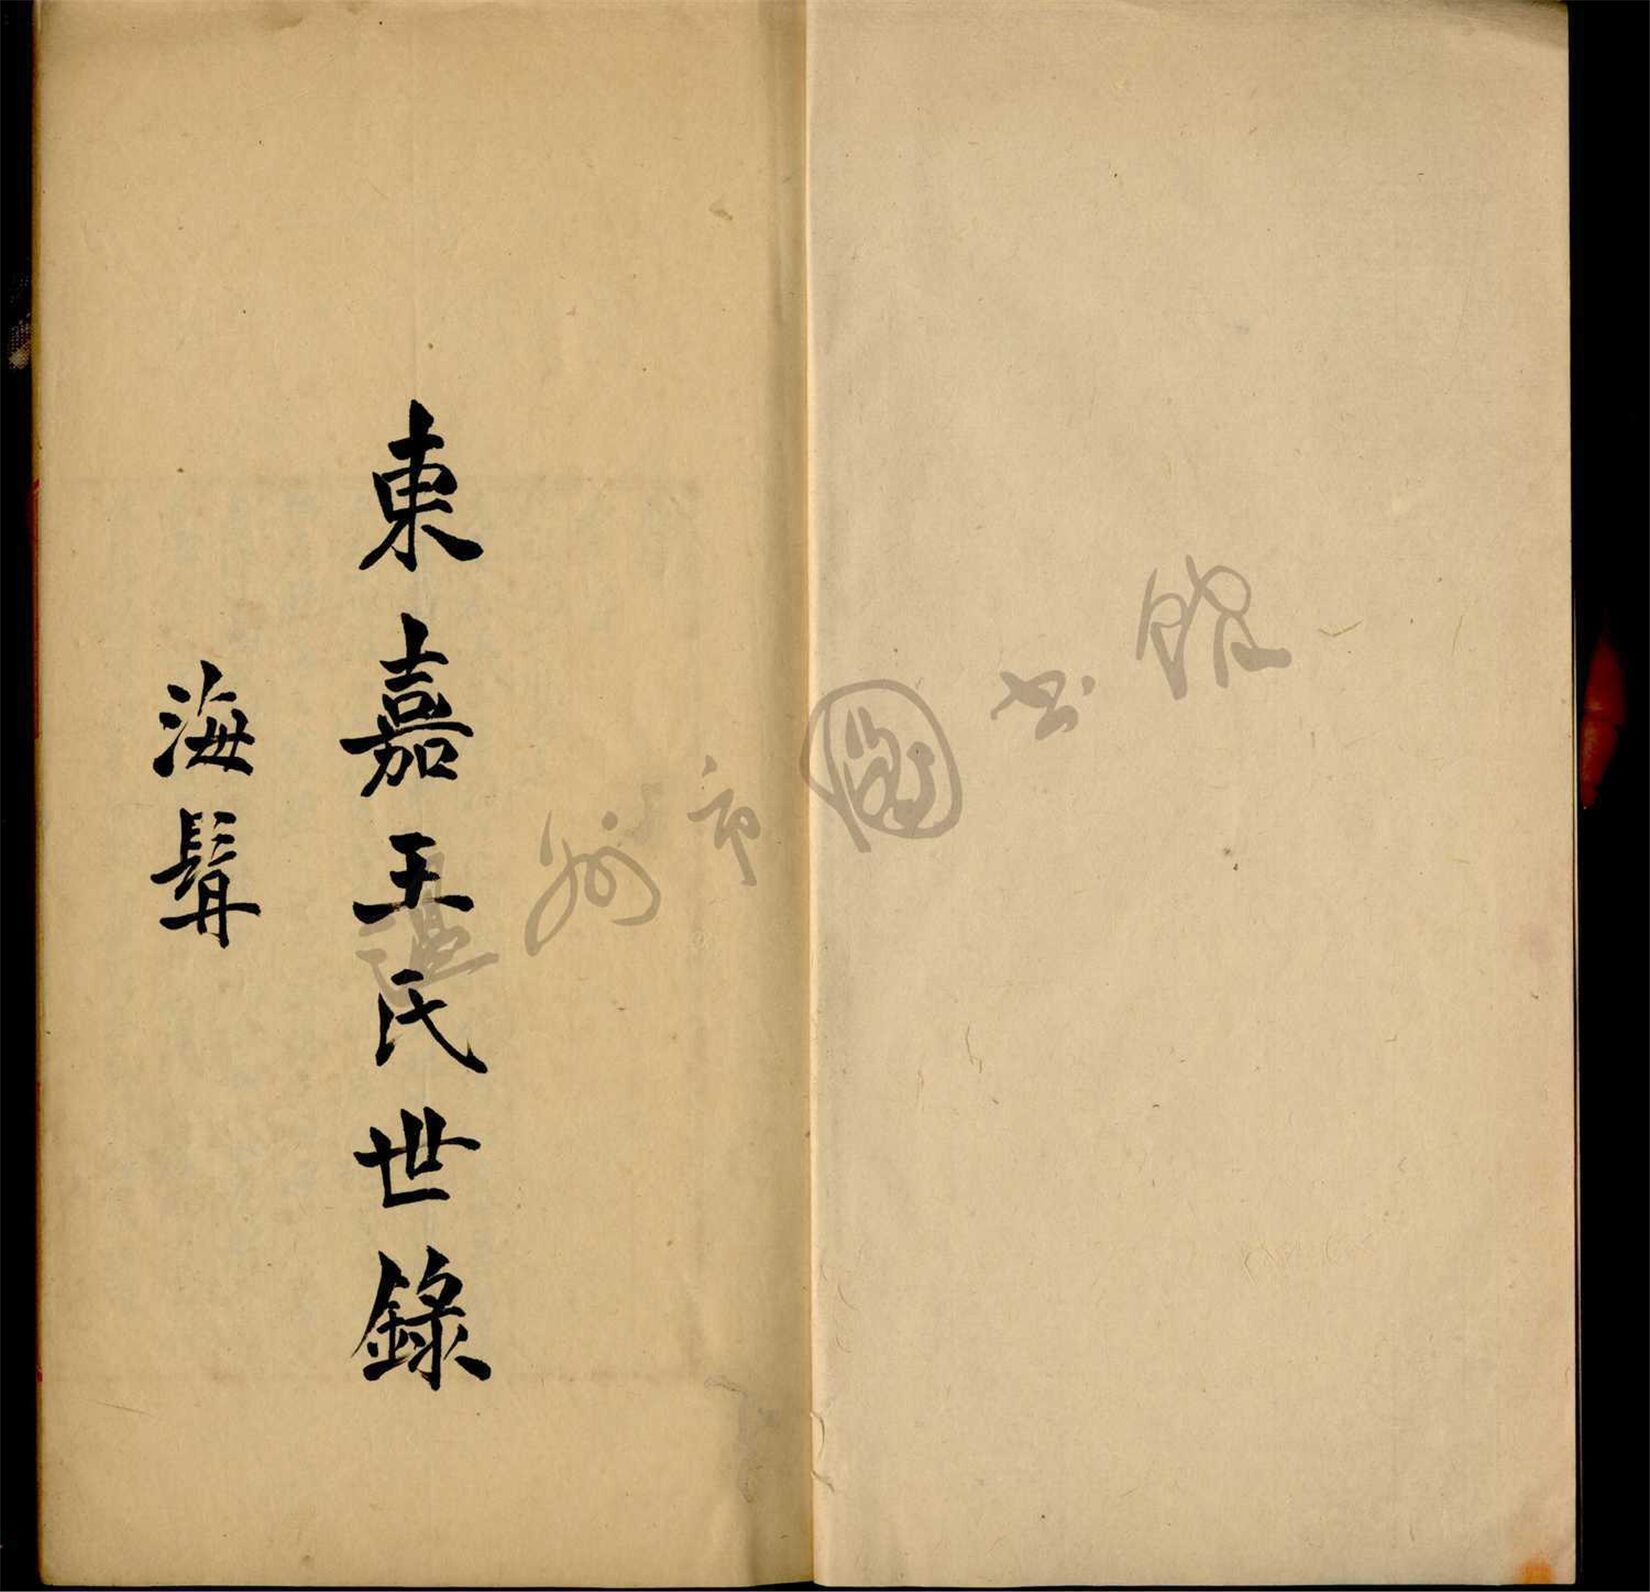 東嘉王氏世錄
海髯
温州市圖书館